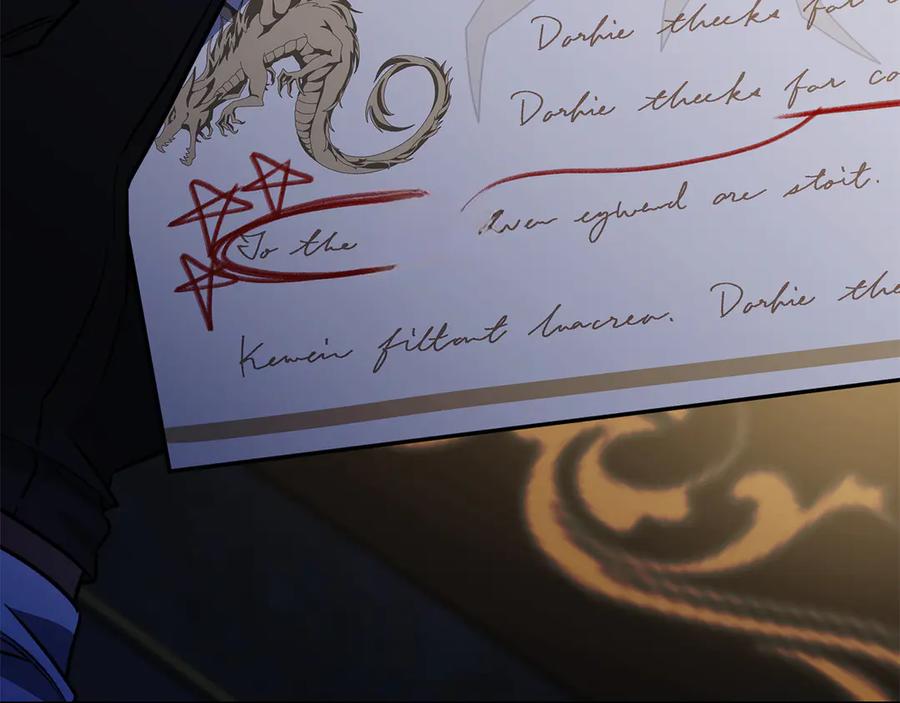 Dorhie theeks for
Dorhie theeks for co
To the
egwend are stoit.
Kewein filtont lnacrea. Dorhie the